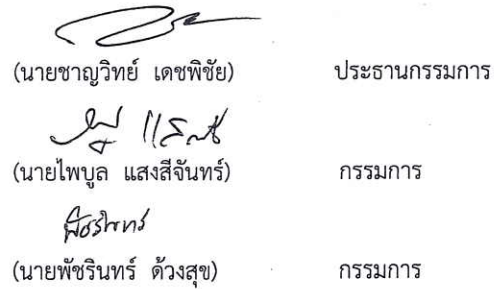 (นายชาญวิทย์ เดชพิชัย) ประธานกรรมการ
(นายไพบูล แสงสีจันทร์) กรรมการ
พัชรินทร์
(นายพัชรินทร์ ด้วงสุข) กรรมการ